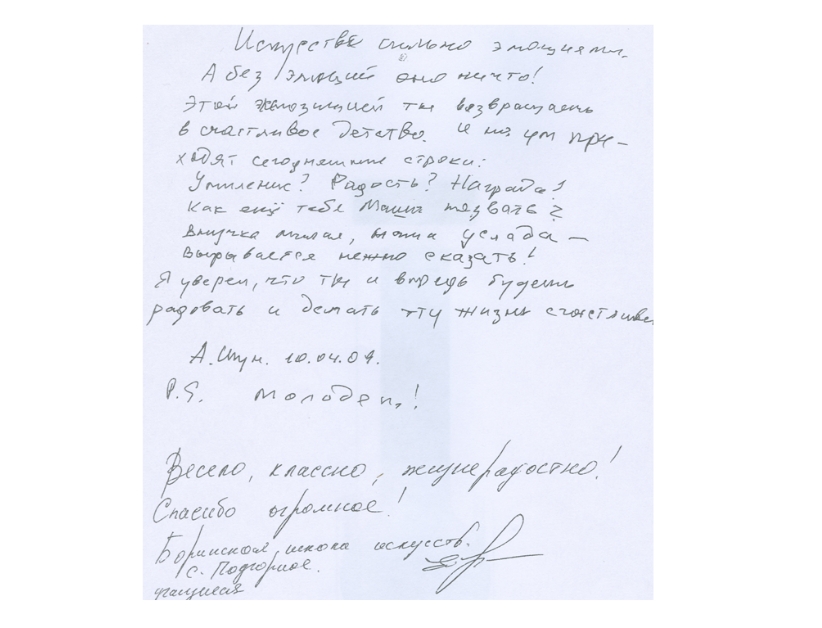 Искусство сильно эмоциями.
А без эмоций оно ничто!
Этой экспозицией ты возвращаешь
в счастливое детство. И на ум при-
ходят сегодняшние строки:
Умиление? Радость? Награда?
Как ещё тебе Маши назвать?
Внучка милая, услада —
Вырывается нежно сказать!
Я уверен, что ты и впредь будешь
радовать и делать эту жизнь счастливей
А. Шун. 10.04.09.
P.S. Молодец!
Весело, классно, жизнерадостно!
Спасибо огромное!
Боринская школа искусств.
с. Подгорное.
учащиеся